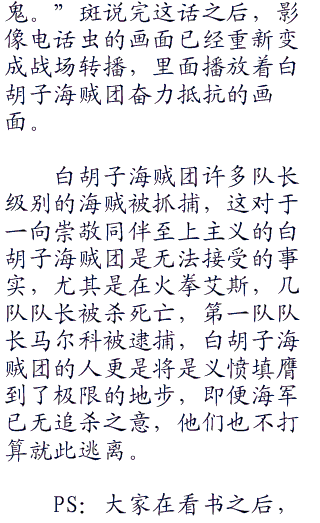 鬼。”斑说完这话之后，影
像电话虫的画面已经重新变
成战场转播，里面播放着白
胡子海贼团奋力抵抗的画
面。
白胡子海贼团许多队长
级别的海贼被抓捕，这对于
一向崇敬同伴至上主义的白
胡子海贼团是无法接受的事
实，尤其是在火拳艾斯，几
队队长被杀死亡，第一队队
长马尔科被逮捕，白胡子海
贼团的人更是将是义愤填膺
到了极限的地步，即便海军
已无追杀之意，他们也不打
算就此逃离。
PS：大家在看书之后，